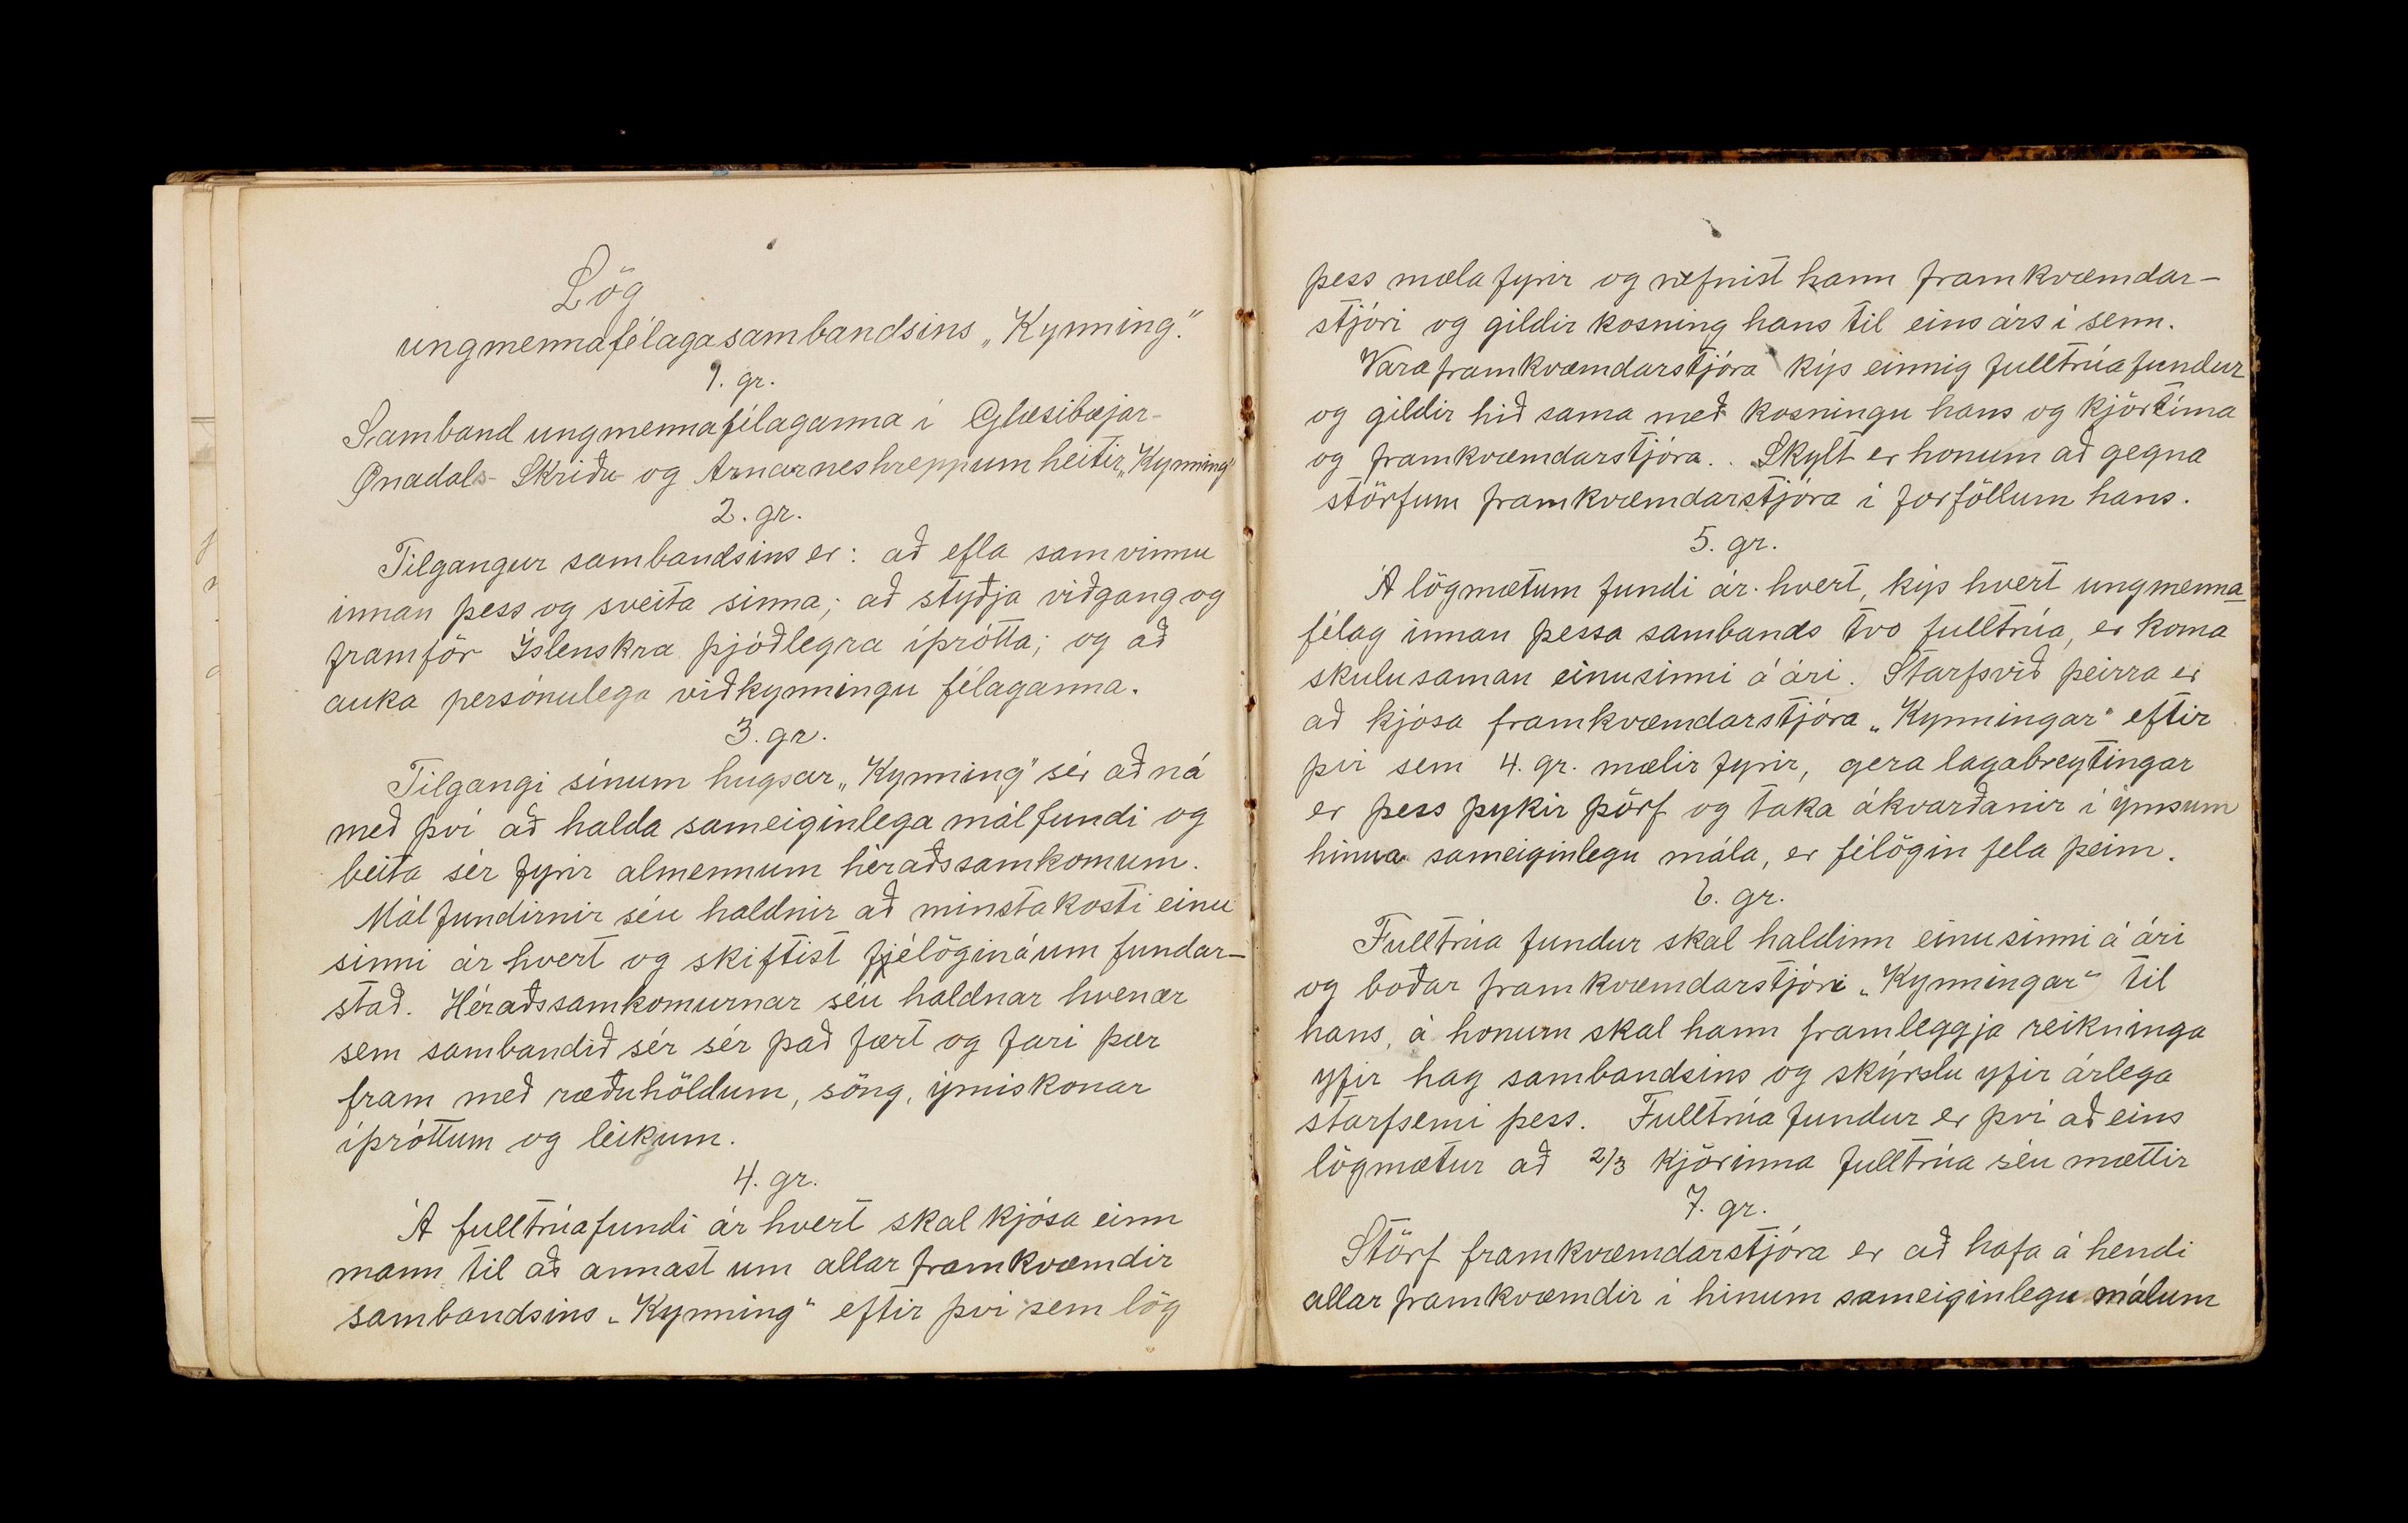 Lög
ungmennafélagasambandsins „Kynning".
1. gr.
Samband ungmennafélaganna í Glæsibæjar-
Öxnadals- Skriðu- og Arnarneshreppum heitir „Kynning"
2. gr.
Tilgangur sambandsins er: að efla samvinnu
innan þess og sveita sinna; að styðja viðgang og
framför Íslenskra þjóðlegra íþrótta; og að
auka persónulega viðkynningu félaganna.
3. gr.
Tilgangi sínum hugsar „Kynning" sér að ná
með því að halda sameiginlega málfundi og
beita sér fyrir almennum héraðssamkomum.
Málfundirnir séu haldnir að minsta kosti einu
sinni ár hvert og skiftist fjélögin á um fundar-
stað. Héraðssamkomurnar séu haldnar hvenær
sem sambandið sér sér það fært og fari þær
fram með ræðuhöldum, söng, ýmiskonar
íþróttum og leikjum.
4. gr.
Á fulltrúafundi ár hvert skal kjósa einn
mann til að annast um allar framkvæmdir
sambandsins „Kynning" eftir því sem lög
þess mæla fyrir og nefnist hann framkvæmdar-
stjóri og gildir kosning hans til eins árs í senn.
Varaframkvæmdarstjóra kýs einnig fulltrúafundur
og gildir hið sama með kosningu hans og kjörtíma
og framkvæmdarstjóra. Skylt er honum að gegna
störfum framkvæmdarstjóra í forföllum hans.
5. gr.
Á lögmætum fundi ár hvert, kýs hvert ungmenna-
félag innan þessa sambands tvo fulltrúa, er koma
skulu saman einusinni á ári. Starfsvið þeirra er
að kjósa framkvæmdarstjóra „Kynningar" eftir
því sem 4. gr. mælir fyrir, gera lagabreytingar
er þess þykir þörf og taka ákvarðanir í ýmsum
hinna sameiginlegu mála, er félögin fela þeim.
6. gr.
Fulltrúa fundur skal haldinn einusinni á ári
og boðar framkvæmdarstjóri „Kynningar" til
hans, á honum skal hann framleggja reikninga
yfir hag sambandsins og skýrslu yfir árlega
starfsemi þess. Fulltrúa fundur er því að eins
lögmætur að 2/3 kjörinna fulltrúa séu mættir
7. gr.
Störf framkvæmdarstjóra er að hafa á hendi
allar framkvæmdir í hinum sameiginlegu málum